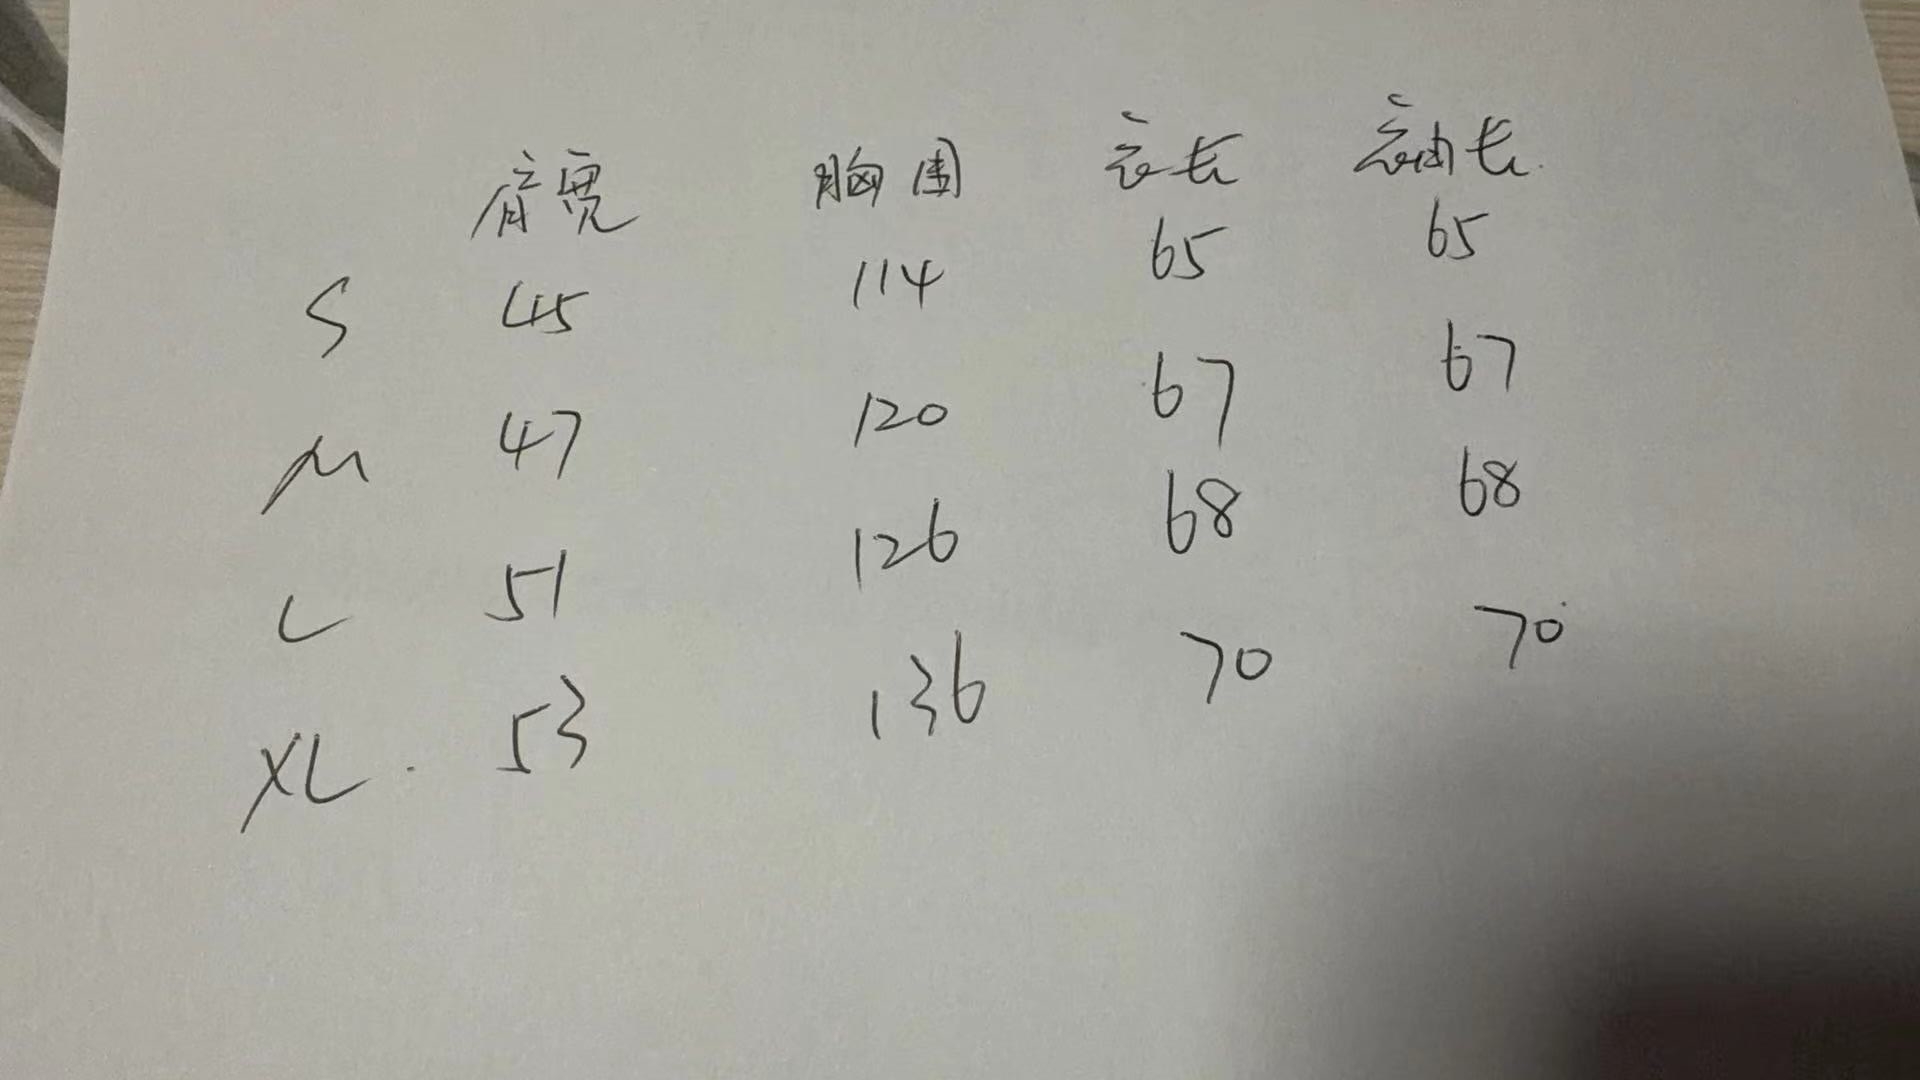 肩宽 胸围 衣长 袖长
S 45 114 65 65
M 47 120 67 67
L 51 126 68 68
XL. 53 136 70 70